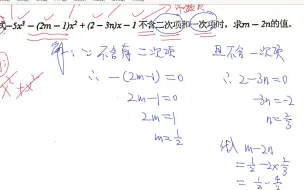 式 −5x³ − (2m − 1)x² + (2 − 3n)x − 1 不含二次项和一次项时，求m − 2n的值。
解：∵ 不含有二次项 且不含一次项
∴ −(2m−1)=0 ∴ 2−3n=0
2m−1=0 −3n=−2
2m=1 n=2/3
m=1/2 m−2n
=1/2−2×2/3
=1/2−4/3